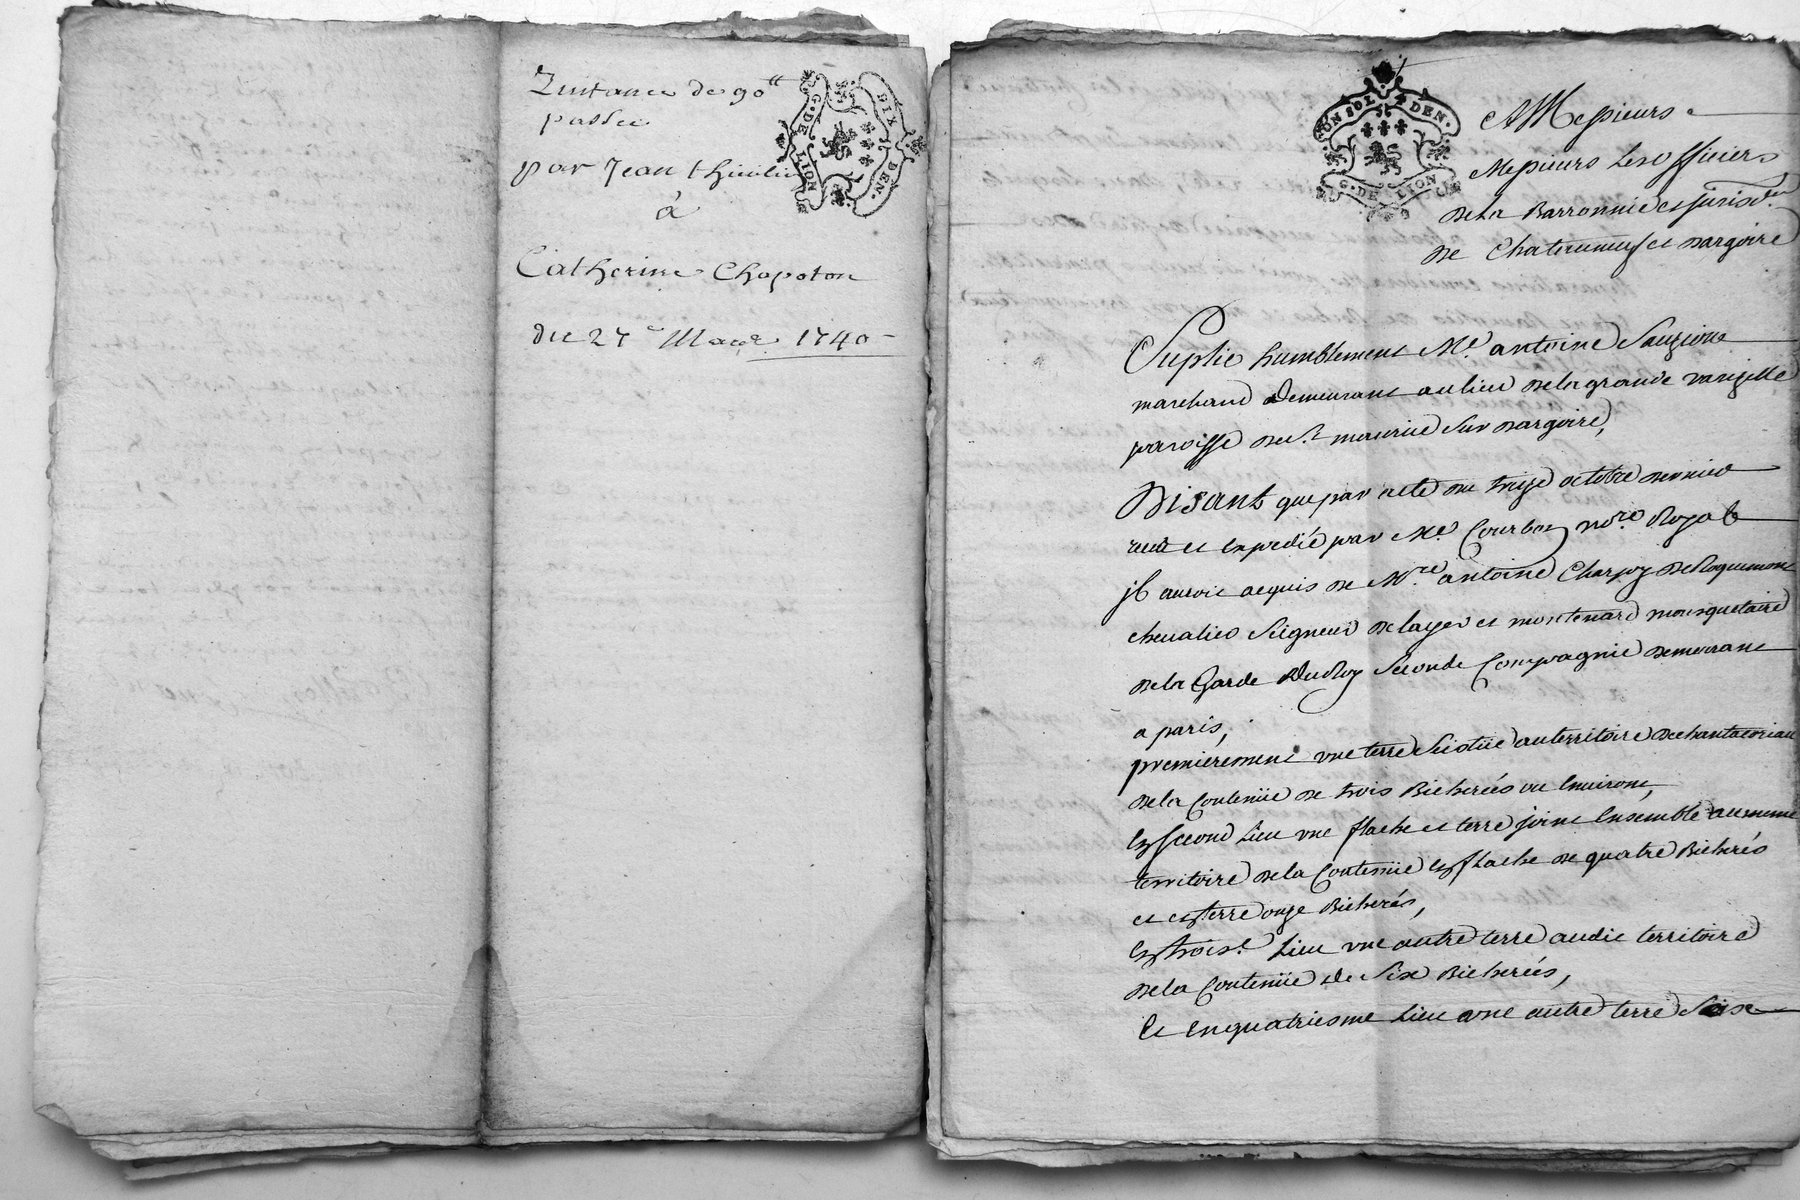 Quitance de 90ᵗᵗ
passée
par Jean thiollie
à
Catherine Chapoton
du 27ᵉ Mars 1740
DIX DEN.
G. DE LION
UN SOL 4 DEN.
G. DE LION
A Messieurs
Messieurs Les officiers
De La Barronnie et jurisd.ᵒⁿ
De Chateauneuf et Dargoire
Suplie humblement Mᵉ. antoine Sauzion
marchand Demeurant au lieu De la grande varizelle
paroisse De Sᵗ maurice Sur Dargoire,
Disant que par acte du treize octobre Dernier
receu et Expedié par Mᵉ. Courbon noʳᵉ Royal
jl auroit acquis de Mʳᵉ antoine Charpy De Roquemont
chevalier Seigneur De layer et montenard mousquetaire
De la Garde Du Roy Seconde Compagnie Demeurant
a paris,
premierement vne terre Scistüe au territoire De chantacoriau
De la Contenüe De trois Bicherées ou Environs,
En second Lieu vne flache et terre joint Ensemble au meme
territoire De la Contenüe En flache De quatre Bicherés
et en terre onze Bicherés,
En trois.ᵉ Lieu vne autre terre audit territoire
De la Contenüe de Six Bicherées,
Et En quatriesme Lieu vne autre terre Scise